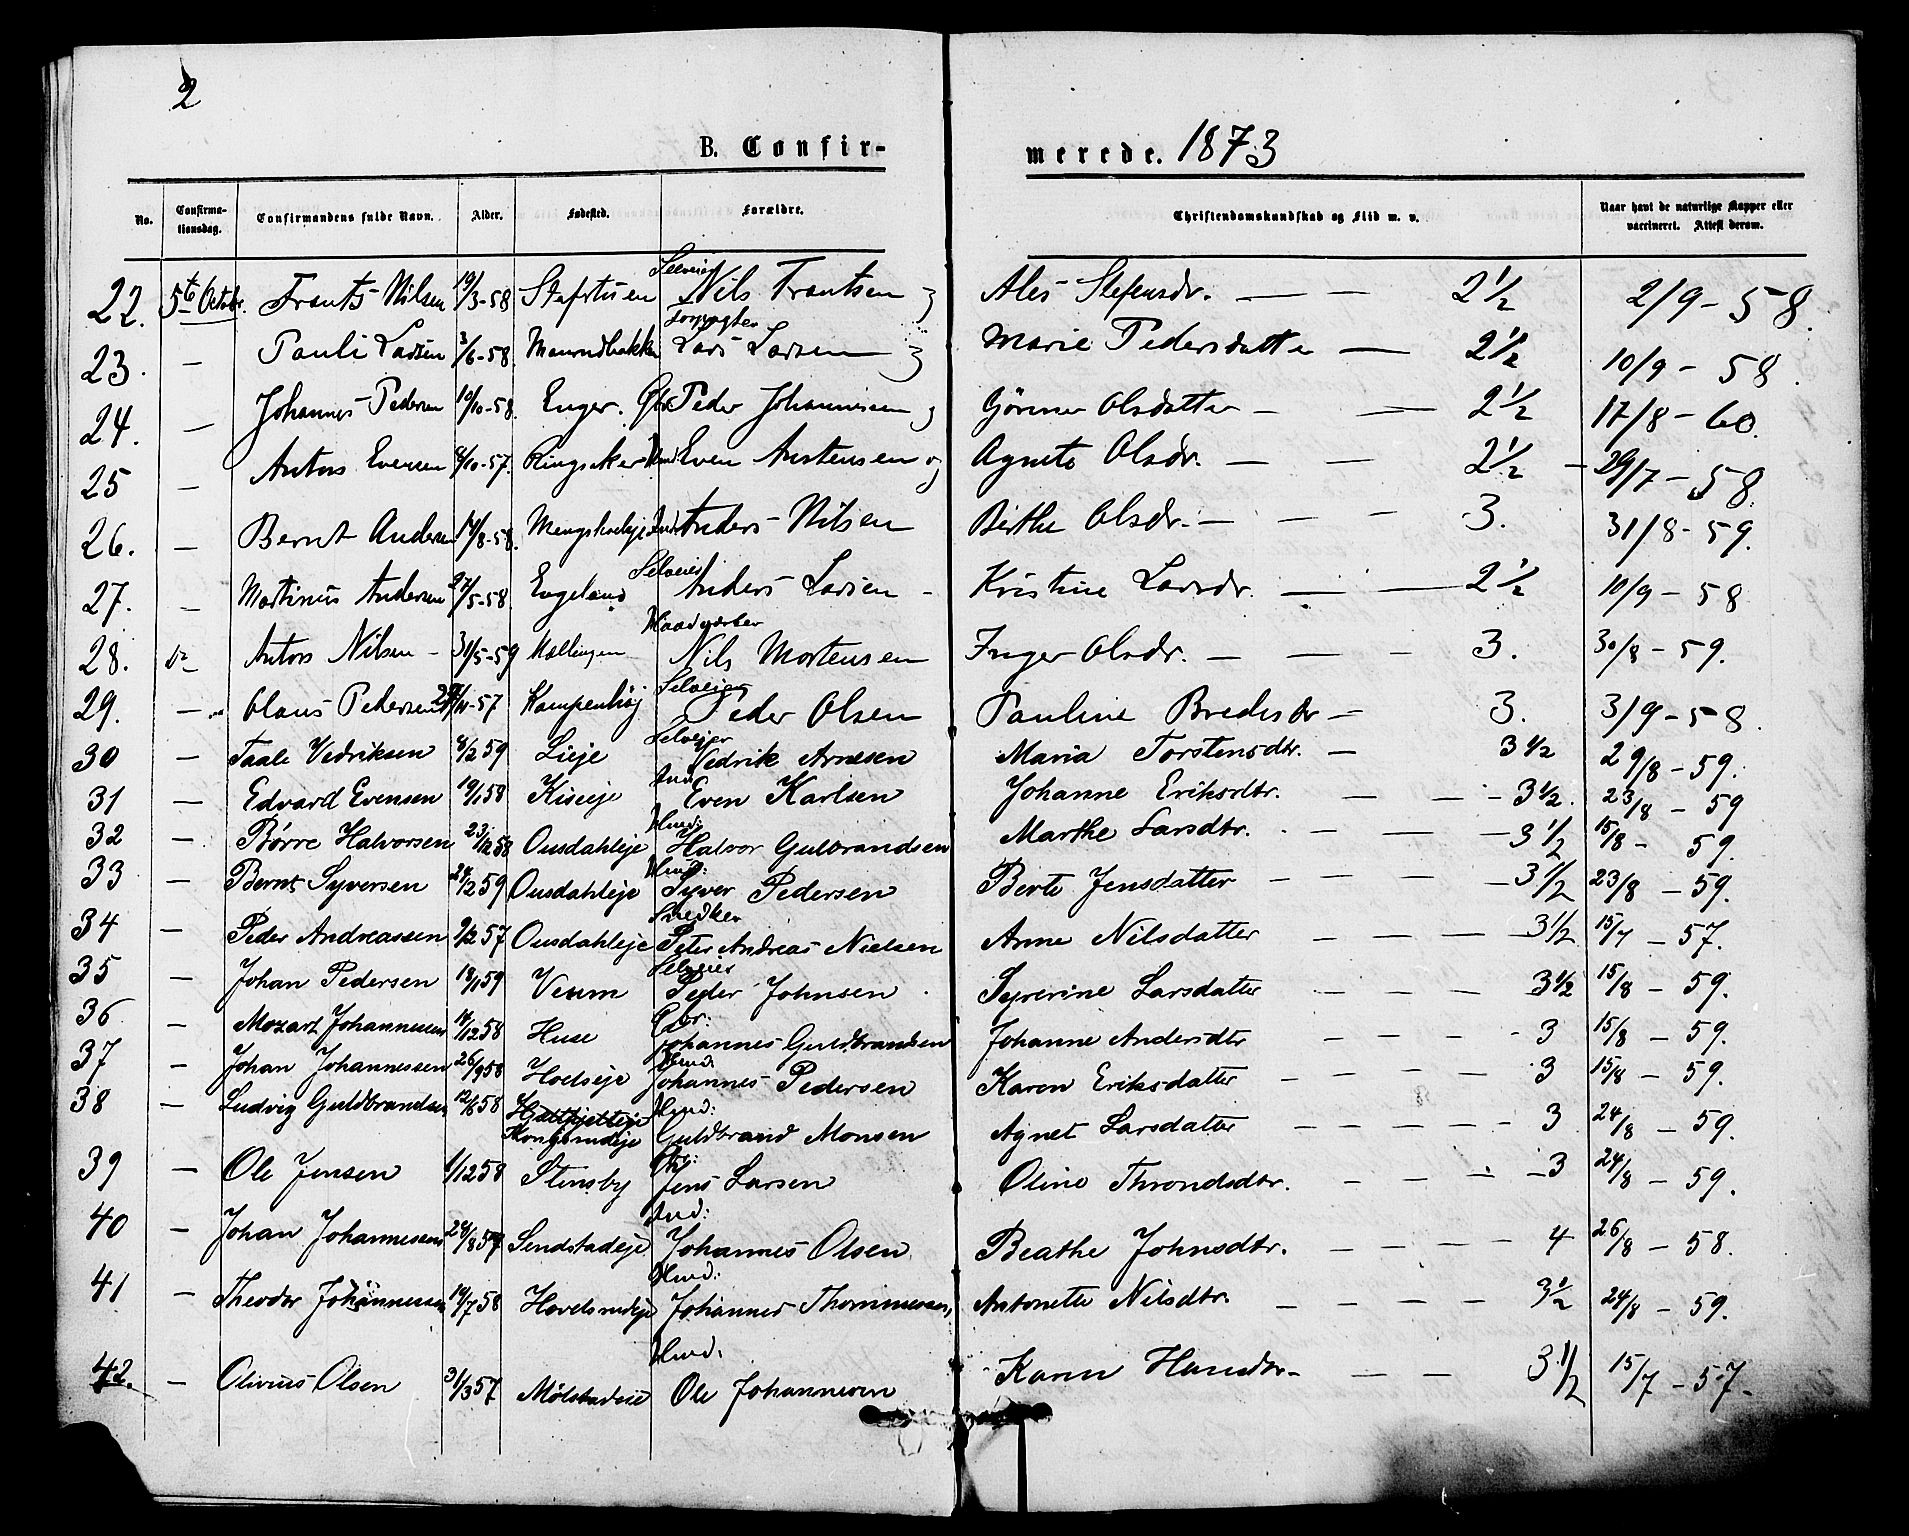 2
B. Confir-
merede. 1873
No. Confirma-tionsdag. Confirmandens fulde Navn. Alder. Fødested. Forældre. Christendomskundskab og Flid m. v. Naar havt de naturlige Kopper eller vaccineret. Attest derom.
Selveier
22. 5te Octobr. Frants Nilsen 19/3-58 Nils Frantsen og Ales Stefensdr. — — 2½ 2/9-58.
Forpagter
23. — Pauli Larsen 3/6-58. Lars Larsen og Marie Pedersdatter — 2½ 10/9-58.
24. — Johannes Pedersen 10/10-58. Enger. Peder Johannesen og Olsdatter — — 2½ 17/8-60.
25 — Anton Evensen 8/10-57. Ringsaker Even Austensen og Agnete Olsdr. — — 2½ - 29/7-58.
26. — Bernt Andersen 17/8-58. Anders Nilsen Birthe Olsdr. — — — 3. 31/8-59.
Selveier
27. — Martinus Andersen 27/5-58. Engeland Anders Larsen - Kristine Larsdr. — — 2½ 10/9-58
28. do Anton Nilsen - 31/5-59 Nils Mortensen Inger Olsdr. — — — 3. 30/8-59.
Selveier
29. — Olaus Pedersen 29/11-57 Kampenhøj Peder Olsen Pauline Bredesdr — 3. 3/9-58.
Selvejer
30 — Taale Vedriksen 8/2 59 Lieje Vedrik Arnesen Maria Torstensdtr. — 3½ 29/8-59.
Ind
31 — Edvard Evensen 19/1 58 Kiseije Even Karlsen Johanne Eriksdtr. — — - 3½. 23/8-59
Hmd:
32 — Børre Halvorsen 23/12 58 Ousdahleje Halvor Gulbrandsen Marthe Larsdtr. - — — — 3½ 15/8-59.
Hmd:
33 — Bernt Syversen 24/2 59 Ousdahleje Syver Pedersen Berte Jensdatter — — — — 3½ 23/8-59.
Snedker
34 — Peder Andreassen 9/2 57 Ousdahleje Peter Andreas Nielsen Anne Nilsdatter — — — — 3½ 15/7-57.
Selveier
35 — Johan Pedersen 18/1 59 Veum Peder Johnsen Syverine Larsdatter — — — 3½ 15/8-59.
Gbr:
36 — Mozart Johannessen 14/12 58 Huse Johannes Guldbrandsen Johanne Andersdtr — — — - 3 15/8-59.
Hmd:
37 — Johan Johannessen 26/9 58 Hoelseje Johannes Pedersen Karen Eriksdatter — — — — 3 15/8-59.
Hmd:
38 — Ludvig Guldbrandsen 12/6 58 Guldbrand Monsen Agnet Larsdatter — — — — 3 24/8-59.
39 — Ole Jensen 1/12 58 Stensby Jens Larsen Oline Throndsdtr. — — — - -3 24/8-59.
Ind:
40 — Johan Johannessen 28/8 57 Sendstadeje Johannes Olsen Beathe Johnsdtr. — — — — 4 26/8-58.
Hmd:
41 — Theodor Johannessen 19/7 58 Hovelsrudeje Johannes Thommesen, Antonette Nilsdtr. — — — — 3½ 24/8-59.
Hmd:
42. — Olivius Olsen 31/3 57 Mølstadeie Ole Johannesen Karen Hansdtr- — — 3½ 15/7-57-